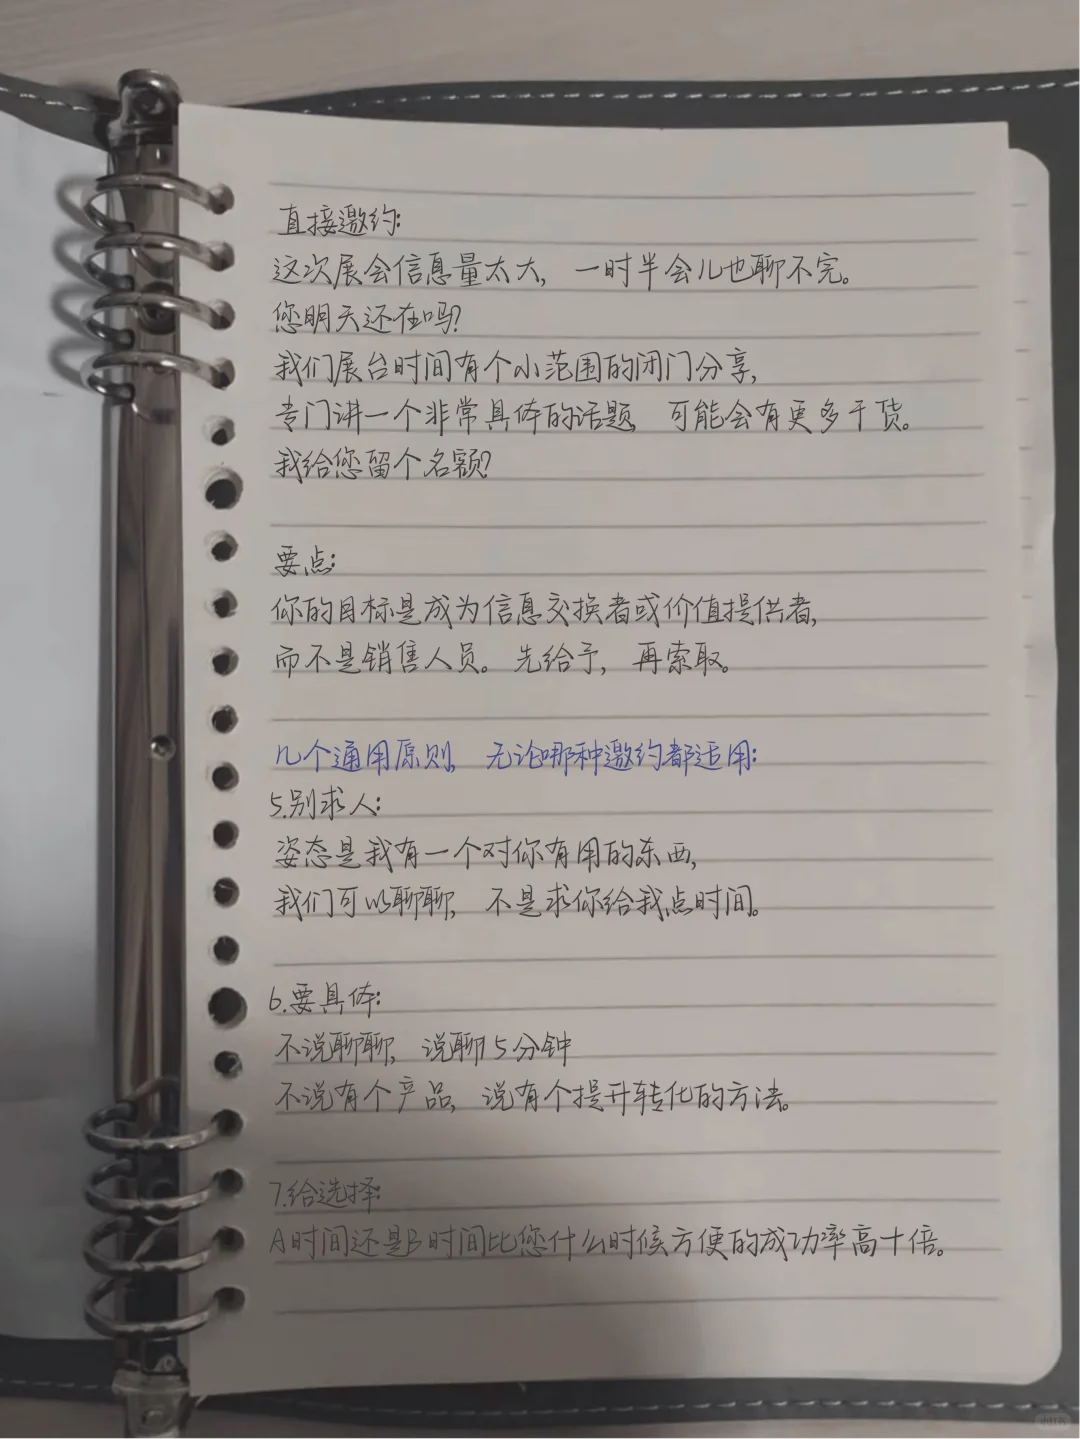 直接邀约:
这次展会信息量太大, 一时半会儿也聊不完。
您明天还在吗?
我们展台时间有个小范围的闭门分享,
专门讲一个非常具体的话题, 可能会有更多干货。
我给您留个名额?
要点:
你的目标是成为信息交换者或价值提供者,
而不是销售人员。先给予, 再索取。
几个通用原则, 无论哪种邀约都适用:
5.别求人:
姿态是我有一个对你有用的东西,
我们可以聊聊, 不是求你给我点时间。
6.要具体:
不说聊聊, 说聊15分钟
不说有个产品, 说有个提升转化的方法。
7.给选择:
A时间还是B时间比您什么时候方便的成功率高十倍。
小红书